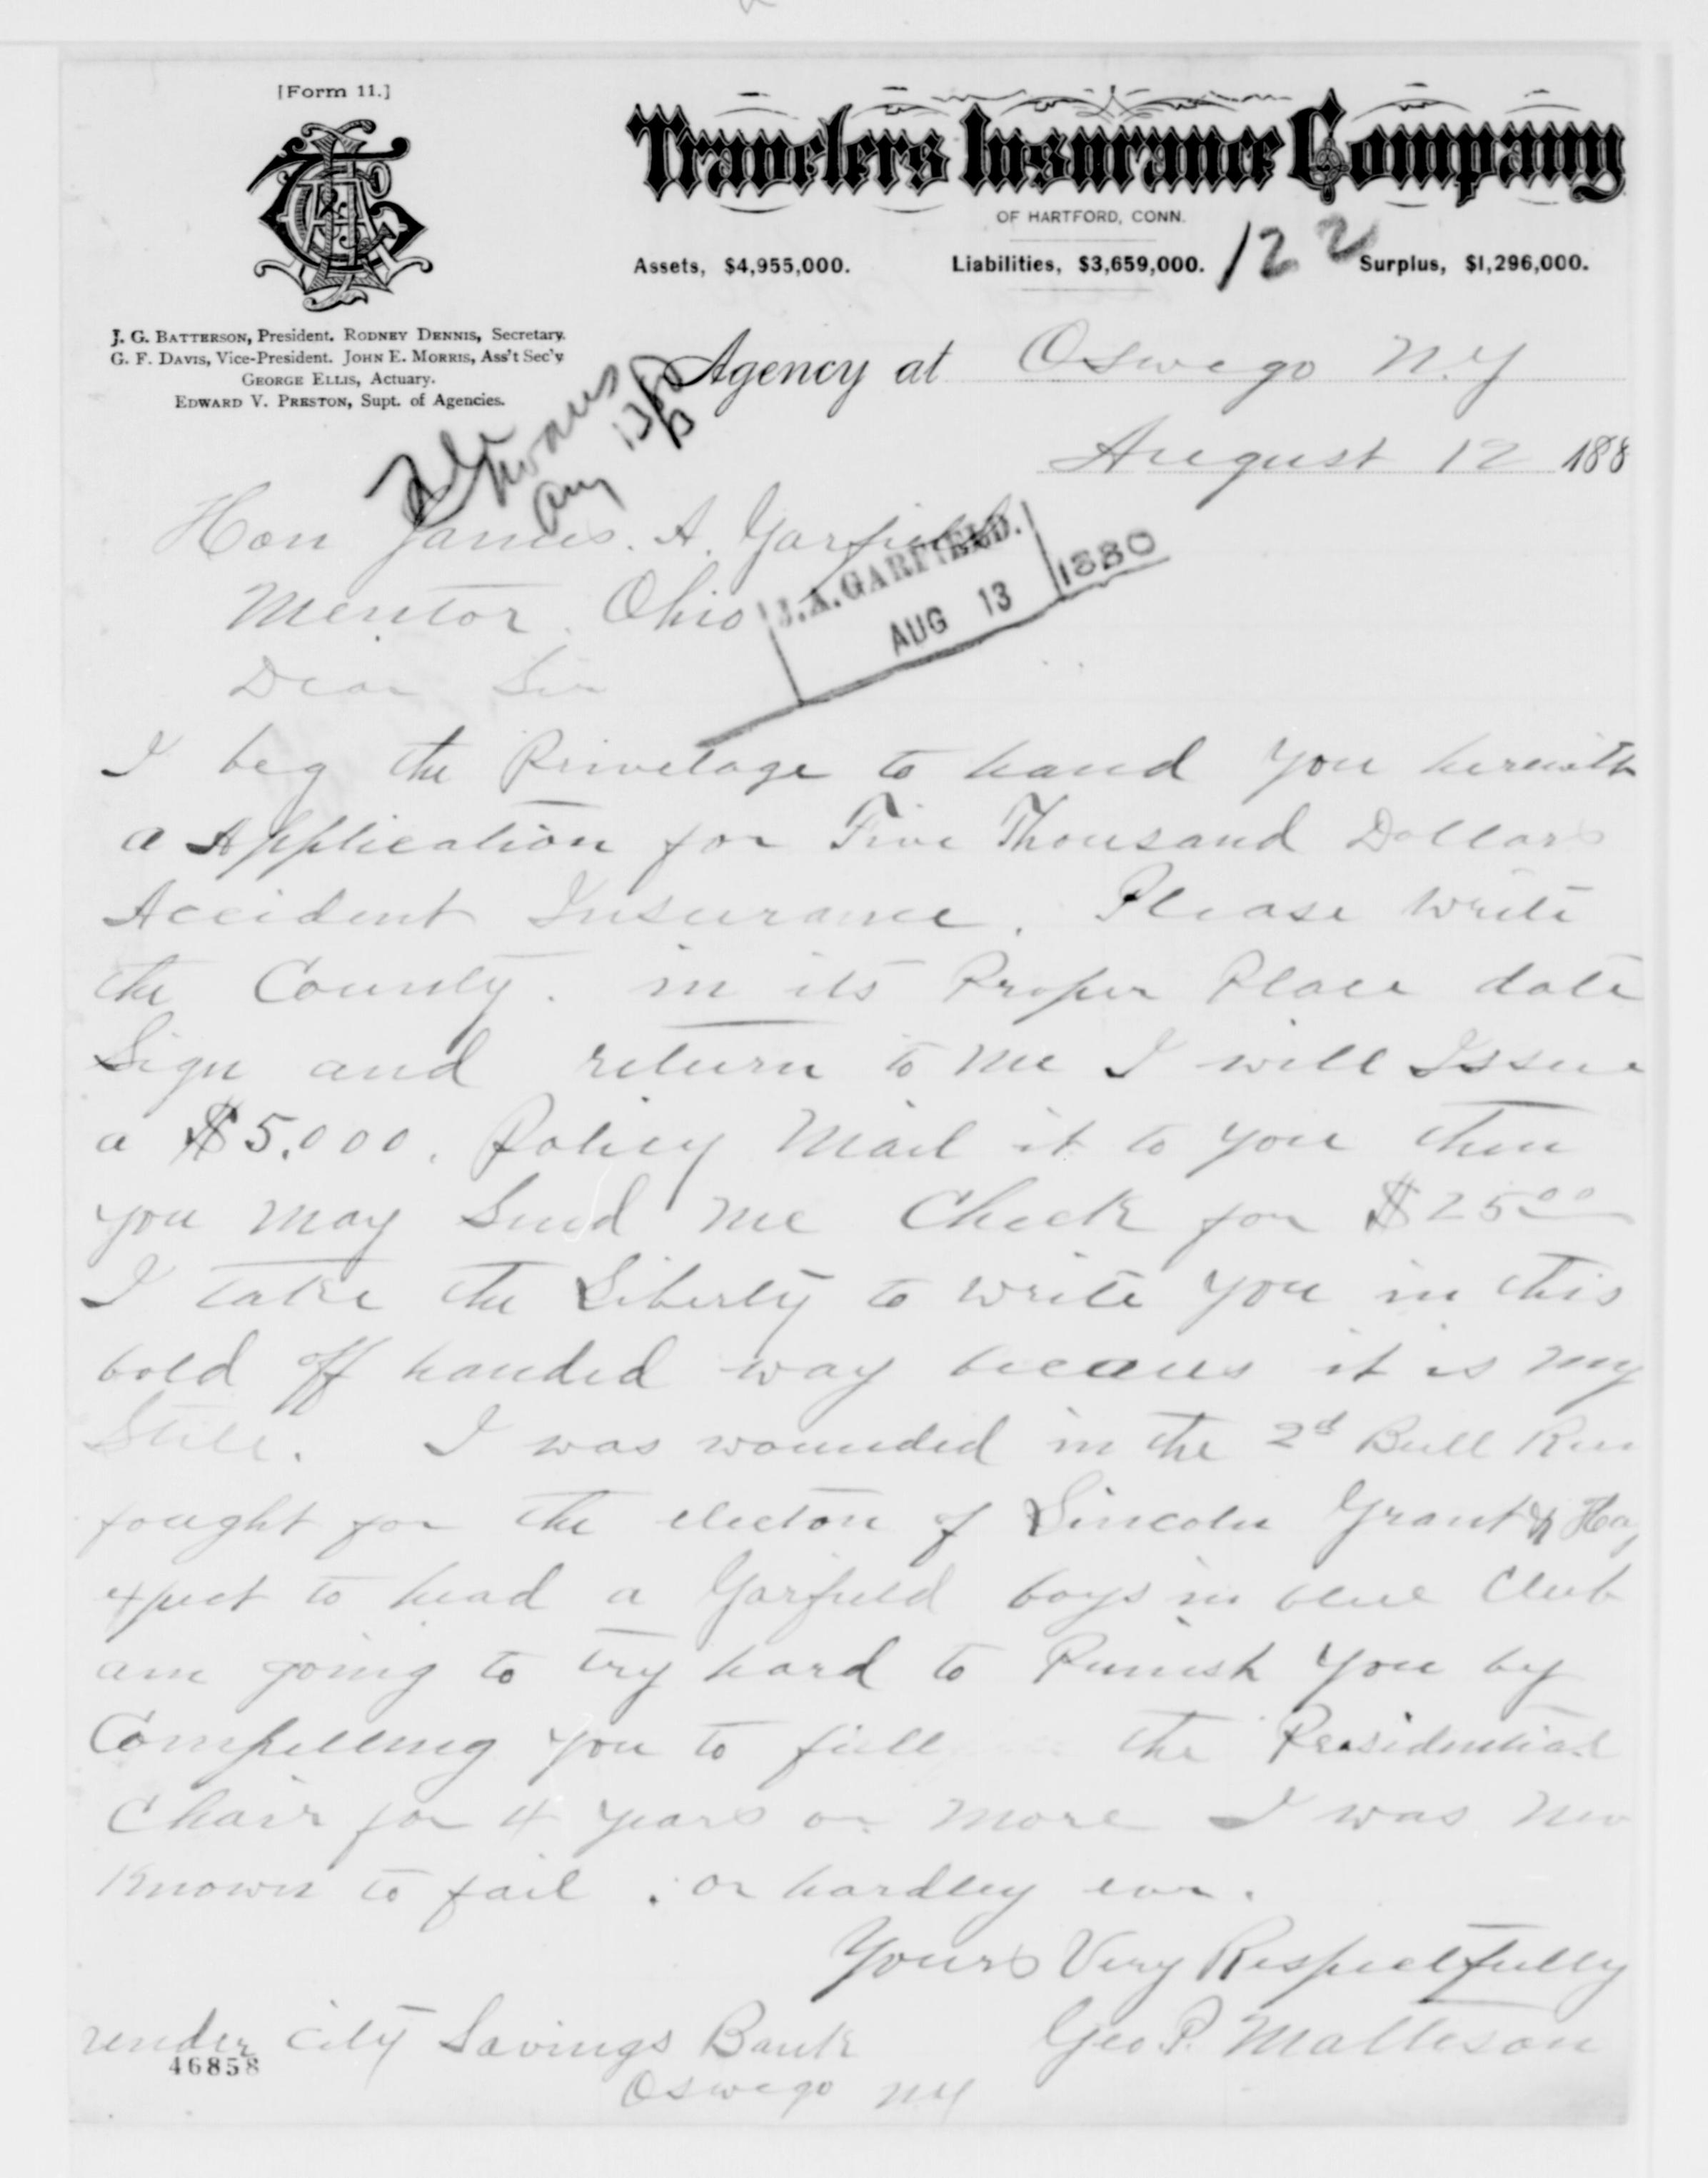 [Form 11.]
Travelers Insurance Company
OF HARTFORD, CONN.
122
Assets, $4,955,000. Liabilities, $3,659,000. Surplus, $1,296,000.
J. G. BATTERSON, President. RODNEY DENNIS, Secretary.
G. F. DAVIS, Vice-President. JOHN E. MORRIS, Ass't Sec'y
GEORGE ELLIS, Actuary.
EDWARD V. PRESTON, Supt. of Agencies.
Agency at Oswego N.Y
August 12 188
Aug 13
Hon James. A. Garfield
Mentor. Ohio
J.A. GARFIELD.
AUG 13 1880
Dear Sir
I beg the Privelage to hand you herewith
a Application for Five Thousand Dollars
Accident Insurance. Please write
the County. in its Proper Place date
Sign and return to me I will Issue
a $5.000. Policy Mail it to you then
you may Send me Check for $25 00
I take the Liberty to write you in this
bold off handed way becaus it is my
Stile. I was wounded in the 2d Bull Run
fought for the electon of Lincoln Grant & Hay
expect to head a Garfield boys in blue Club
am going to try hard to Punish you by
Compelling you to fill the Presidential
Chair for 4 years or more I was nev
Known to fail. or hardley ever.
Yours Very Respectfully
Geo P. Matteson
under City Savings Bank
46858
Oswego NY